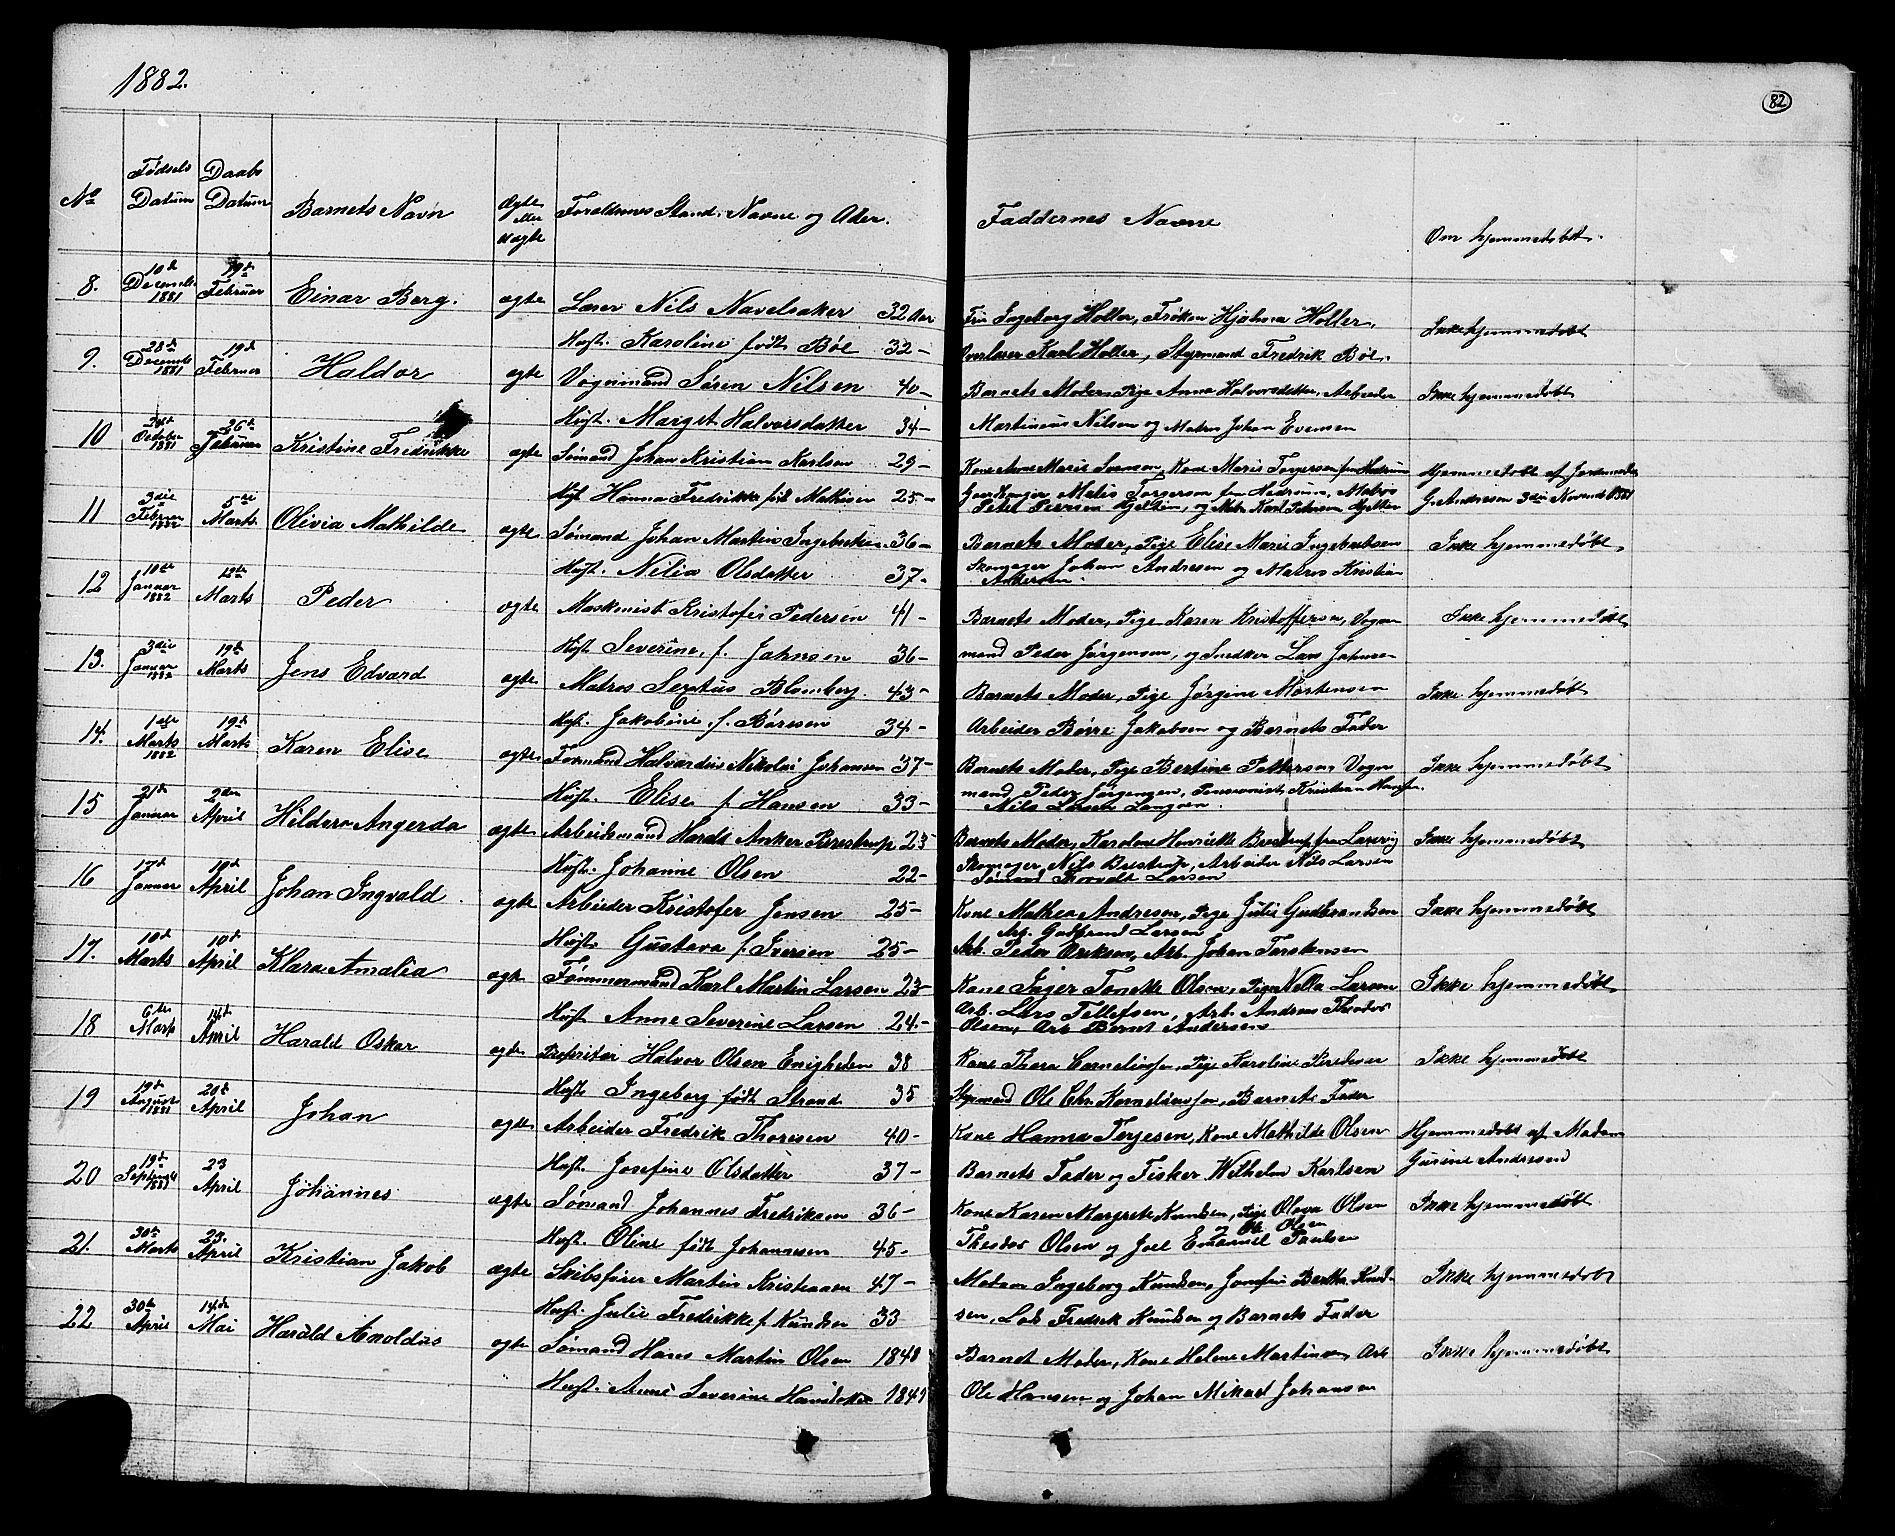 1882.
82
No
Fødsels Datum
Daabs Datum
Barnets Navn
Ægte eller uægte
Foraldrenes Stand, Navne og Alder.
Faddernes Navne
Om hjemmedøbt.
8. 10de Decembr 1881 19de Februar Einar Berg. ægte Lærer Nils Navelsaker 32 Aar
Hust. Karoline født Bøe 32-
Fru Ingeborg Holter, Frøken Hjalma Holter,
Overlærer Karl Holter, Styrmand Fredrik Bøe.
Ikke hjemmedøbt
9. 28de Decembr 1881 19de Februar Haldor ægte Vognmand Søren Nilsen 40-
Hust. Marget Halvorsdatter 34-
Barnets Moder, Pige Anna Halvorsdatter, Arbeider
Martinius Nilsen og Matros Johan Evensen
Ikke hjemmedøbt
10 October 1881 26de Februar Kristine Fredrikke ægte Sømand Johan Kristian Karlsen 29-
Hust. Hanna Fredrikke født Mathisen 25-
Kone Anne Marie Svensen, Kone Maria Torgersen fra Hedrum
Gaardbruger Mathis Torgersen fra Hedrum, Matros
Peter Iversen Kjelten, og Matr. Karl Petersen Kjelten
Hjemmedøbt af Jordemoder
G. Andresen 3die Novemb 1881
11 3die Februar 1882 5te Marts Olivia Mathilde ægte Sømand Johan Martin Ingebretsen 36-
Hust. Nilia Olsdatter 37-
Barnets Moder, Pige Elise Marie Ingebretsen
Skomager Johan Andresen og Matros Kristian
Andersen.
Ikke hjemmedøbt
12 10de Januar 1882 12te Marts Peder ægte Maskinist Kristofer Pedersen 41-
Hust. Severine, f. Johnsen 36-
Barnets Moder, Pige Karen Kristoffersen, Vogn
mand Peder Jørgensen, og Snedker Lars Johnsen
Ikke hjemmedøbt
13. 3die Januar 1882 19de Marts Jens Edvard ægte Matros Sexstus Blomberg 43-
Hust. Jakobine f. Børesen 34-
Barnets Moder, Pige Jørgine Mortensen
Arbeider Børre Jakobsen og Barnets Fader
Ikke hjemmedøbt
14. 1ste Marts 1882 19de Marts Karen Elise ægte Formand Halvardus Nikolai Johansen 37-
Hust. Elise f. Hansen 33-
Barnets Moder, Pige Bertine Pettersen Vogn
mand Peder Jørgensen, Pensionist Kristian Hansen.
Nils Larsen Langøen.
Ikke hjemmedøbt
15 21de Januar 2den April Hildora Angerda ægte Arbeidsmand Harald Anker Brestrup 23
Hust. Johanne Olsen 22-
Barnets Moder, Karoline Henriette Brestrup fra Laurvig
Skomager Nils Brestrup, Arbeider Nils Larsen
Sømand Thorvald Larsen
Ikke hjemmedøbt
16 17de Januar 10de April Johan Ingvald ægte Arbeider Kristofer Jensen 25-
Hust. Gustava f. Iversen 25-
Kone Mathea Andresen, Pige Julie Gudbrandsen
Arb. Gulbrand Larsen
Arb. Peder Eriksen, Arb. Johan Torstensen
Ikke hjemmedøbt
17. 10de Marts 10de April Klara Amalia ægte Tømmermand Karl Martin Larsen 23-
Hust. Anne Severine Larsen 24.-
Kone Inger Tonette Olsen, Pige Nella Larsen
Arb. Lars Tellefsen, Arb. Andreas Theodor
Olsen, Arb Bernt Andersen
Ikke hjemmedøbt
18 6te Marts 14de April Harald Oskar ægte Proprietær Halvor Olsen Enigheden 38
Hust. Ingeborg født Strand 35
Kone Thora Corneliussen, Pige Karoline
Styrmand Ole Chr. Korneliussen, Barnets Fader
Ikke hjemmedøbt
19 19de August 1881 20de April Johan ægte Arbeider Fredrik Thorsen 40-
Hust. Josefine Olsdatter 37-
Kone Hanna Terjesen, Kone Mathilde Olsen
Barnets Fader og Fisker Wilhelm Karlsen
Hjemmedøbt af Madam
Gurine Andresen
20 19de Septembr 1881 23 April Johannes ægte Sømand Johannes Fredriksen 36-
Hust. Oline født Johannesen 45-
Kone Karen Margrete Knudsen, Pige Olava Olsen
Ole Olsen
Theodor Olsen og Joel Emanuel Paulsen
Ikke hjemmedøbt
21. 30te Marts 23. April Kristian Jakob ægte Skibsfører Martin Kristiansen 47-
Hust. Julie Fredrikke f. Knudsen 33
Madam Ingeborg Knudsen, Jomfru Bertha Knud-
sen, Lods Fredrik Knudsen og Barnets Fader
Ikke hjemmedøbt
22 30te April 14de Mai Harald Arnoldus ægte Sømand Hans Martin Olsen 1848
Hust. Anne Severine Hansdatter 1849
Barnet Moder, Kone Helene Martinsen Arb
Ole Hansen og Johan Mikael Johansen
Ikke hjemmedøbt